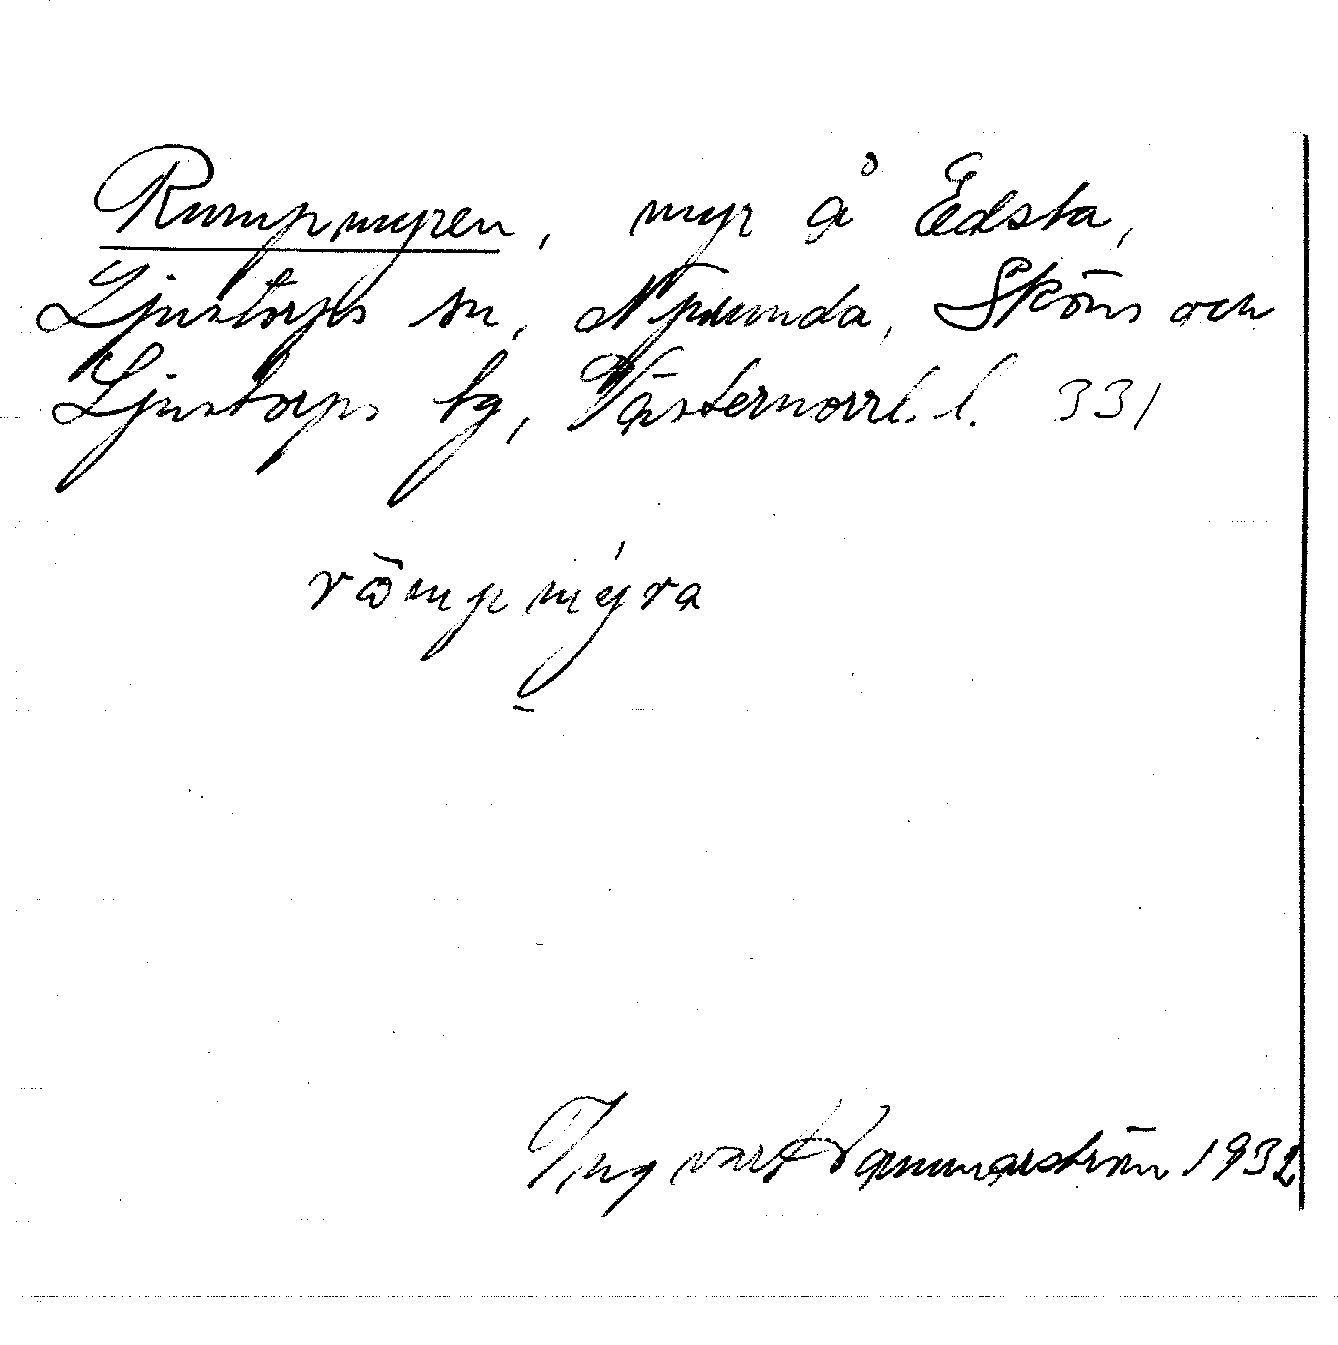 Rumpmyren, myr å Edsta,
Ljustorps sn, Njurunda, Sköns och
Ljustorps tg, Västernorrl. l. 331
römpmýra
Ingvar Hammarström 1932